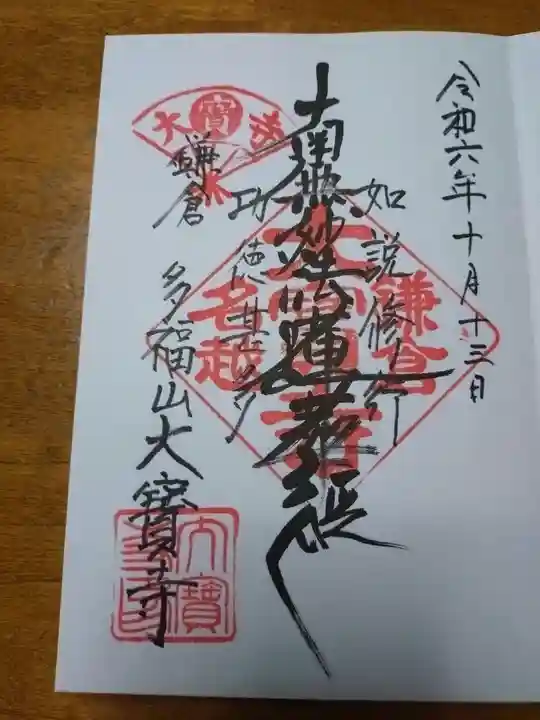 令和六年十月十三日
如説修行
南無妙法蓮華経
功徳甚多
鎌倉 多福山大寶寺
鎌倉
名越
寶
大寶